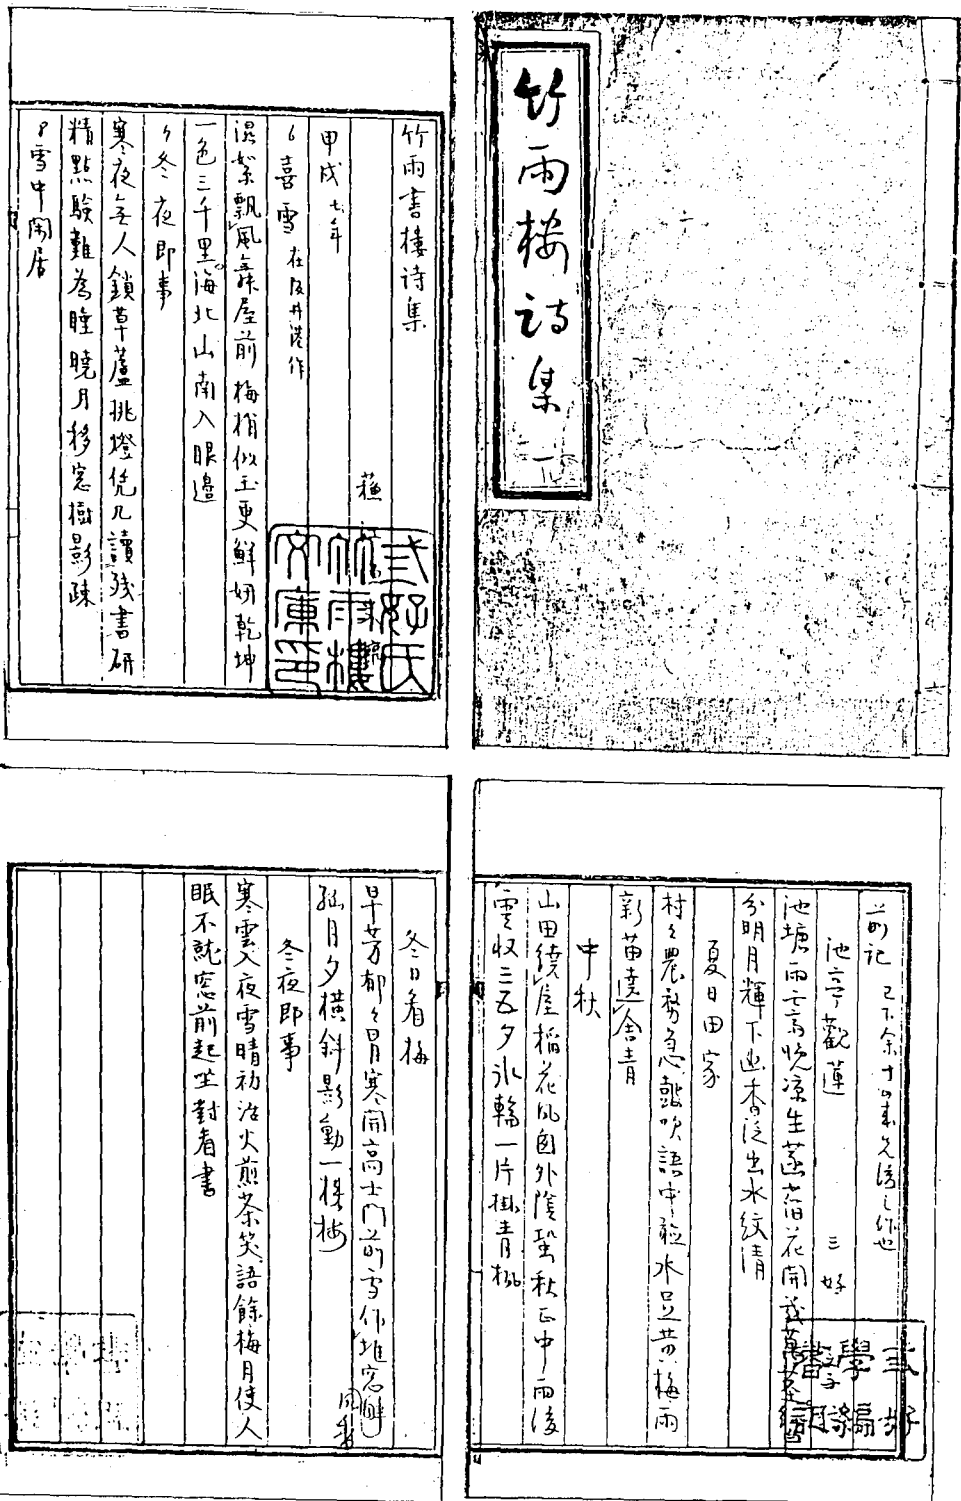 竹雨楼詩集 一
竹雨書樓诗集
甲戌七年
6 喜雪 在坂井港作
混絮飄風舞屋前梅梢似玉更鮮妍乾坤
一色三千里海北山南入眼邊
7 冬夜即事
寒夜無人鎖草蘆挑燈凭几讀残書研
精點驗難為睡曉月移窓樹影疎
8 雪中閑居
三好氏
竹雨樓
文庫印
前記
池亭觀蓮 三好
池塘雨亡高晩凉生菡萏花開
分明月輝下幽香泛出水紋清
夏日田家
村々農務急鼓吹語中 水足黄梅雨
新苗遶舍青
中秋
山田繞屋稲花風 外陰蛩秋正中雨後
雲收三五夕氷輪一片掛青楓
冬日看梅
早芳郁々冒寒開高士門前雪作堆窓
月夕橫斜影動一様梅
冬夜即事
寒雲入夜雪晴初活火煎茶笑語餘梅月使人
眠不就窓前起坐對看書